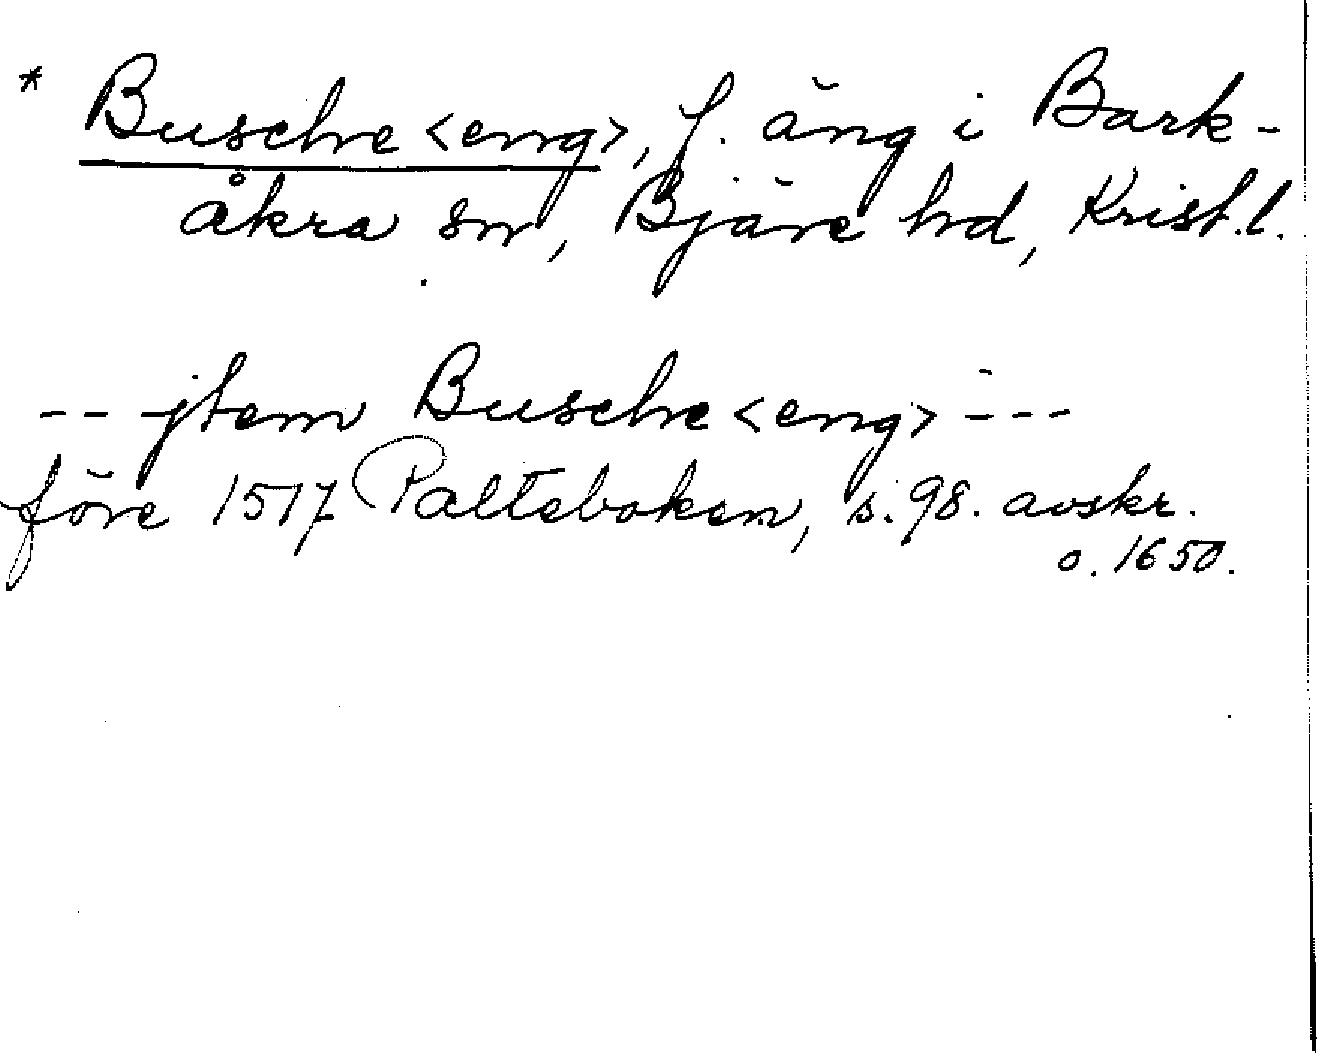 * Busche <eng>, f. äng i Bark-
åkra sn, Bjäre hd, Krist. l.
-- jtem Busche <eng> ---
före 1517 Palteboken, s. 98. avskr.
o. 1650.